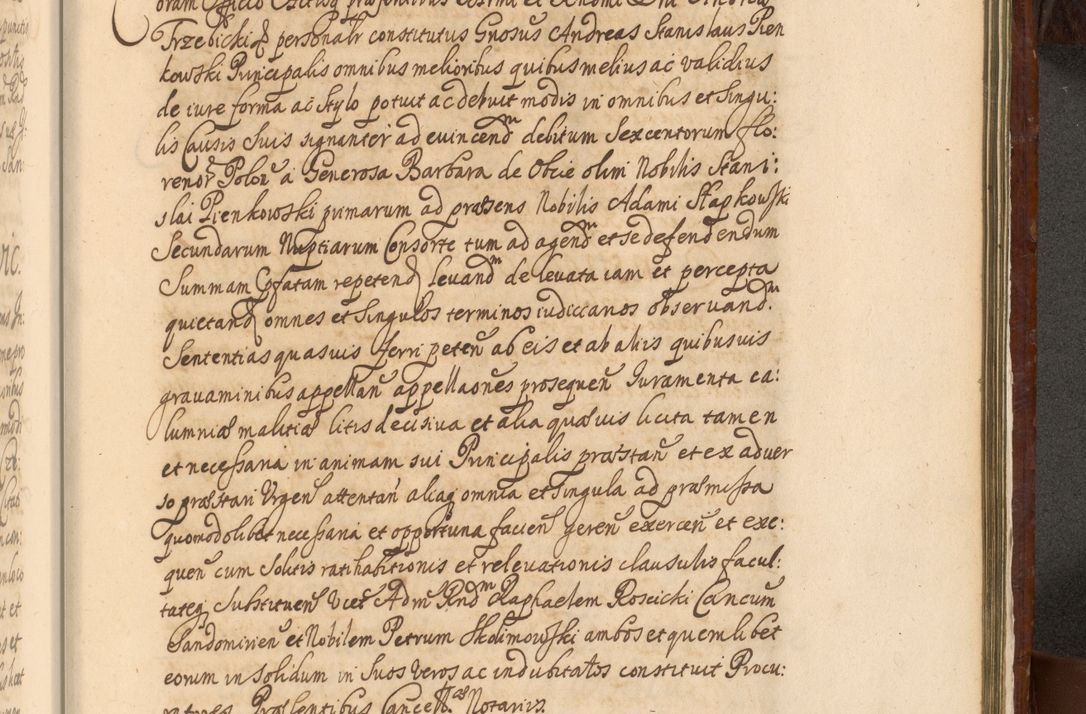 Trzebicki &c personalr constitutus Gnosus Andreas Stanislaus Pien
kowski Principalis omnibus melioribus quibus melius ac validius
de iure forma ac stylo potuit ac debuit modis in omnibus et singu:
lis Causis suis signanter ad evincendm debitum sexcentorum flo:
renor Polon a Generosa Barbara de Obcie olim Nobilis Stani:
slai Pienkowski primarum ad præsens Nobilis Adami Słapkowski
Secundarum Nuptiarum Consorte tum ad agendm et se defendendum
Summam Cpfatam repetend levandm de levata iam et percepta
quietand omnes et singulos terminos iudiccanos observandm
Sententias quasvis ferri peten ab eis et ab aliis quibusvis
gravaminibus appellan appellaones prosequen Iuramenta ca:
lumniæ malitiæ litis decisiva et alia quævis licita tamen
et necessaria in animam sui Principalis præstan et ex adver
so præstari Urgen attentan aliaq omnia et singula ad præmissa
quomodolibet necessaria et opportuna facien geren exercen et exe:
quen cum solitis ratihabitionis et relevationis clausulis facul:
tateq substituen vices Admm Rndm Raphaelem Roscicki Cancum
Sandomirien et Nobilem Petrum Skolimowski ambos et quemlibet
eorum in solidum in suos veros ac indubitatos constituit Procu:
ratores Præsentibus Notarius